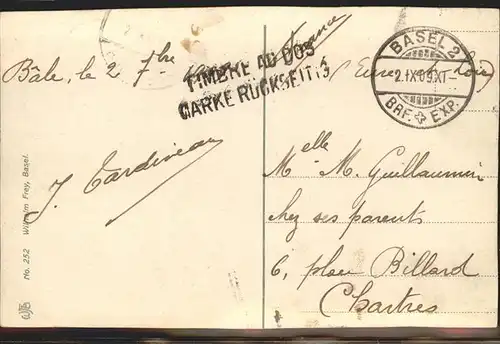 Bâle, le 2 7bre
France
TIMBRE AU DOS
MARKE RÜCKSEITIG
BASEL 2
2.IX.09.XI
BRF. EXP.
(Eure Loir)
J. Tardiveau
Melle M. Guillaumin
chez ses parents
6, place Billard
Chartres
No. 252 Wilhelm Frey, Basel.